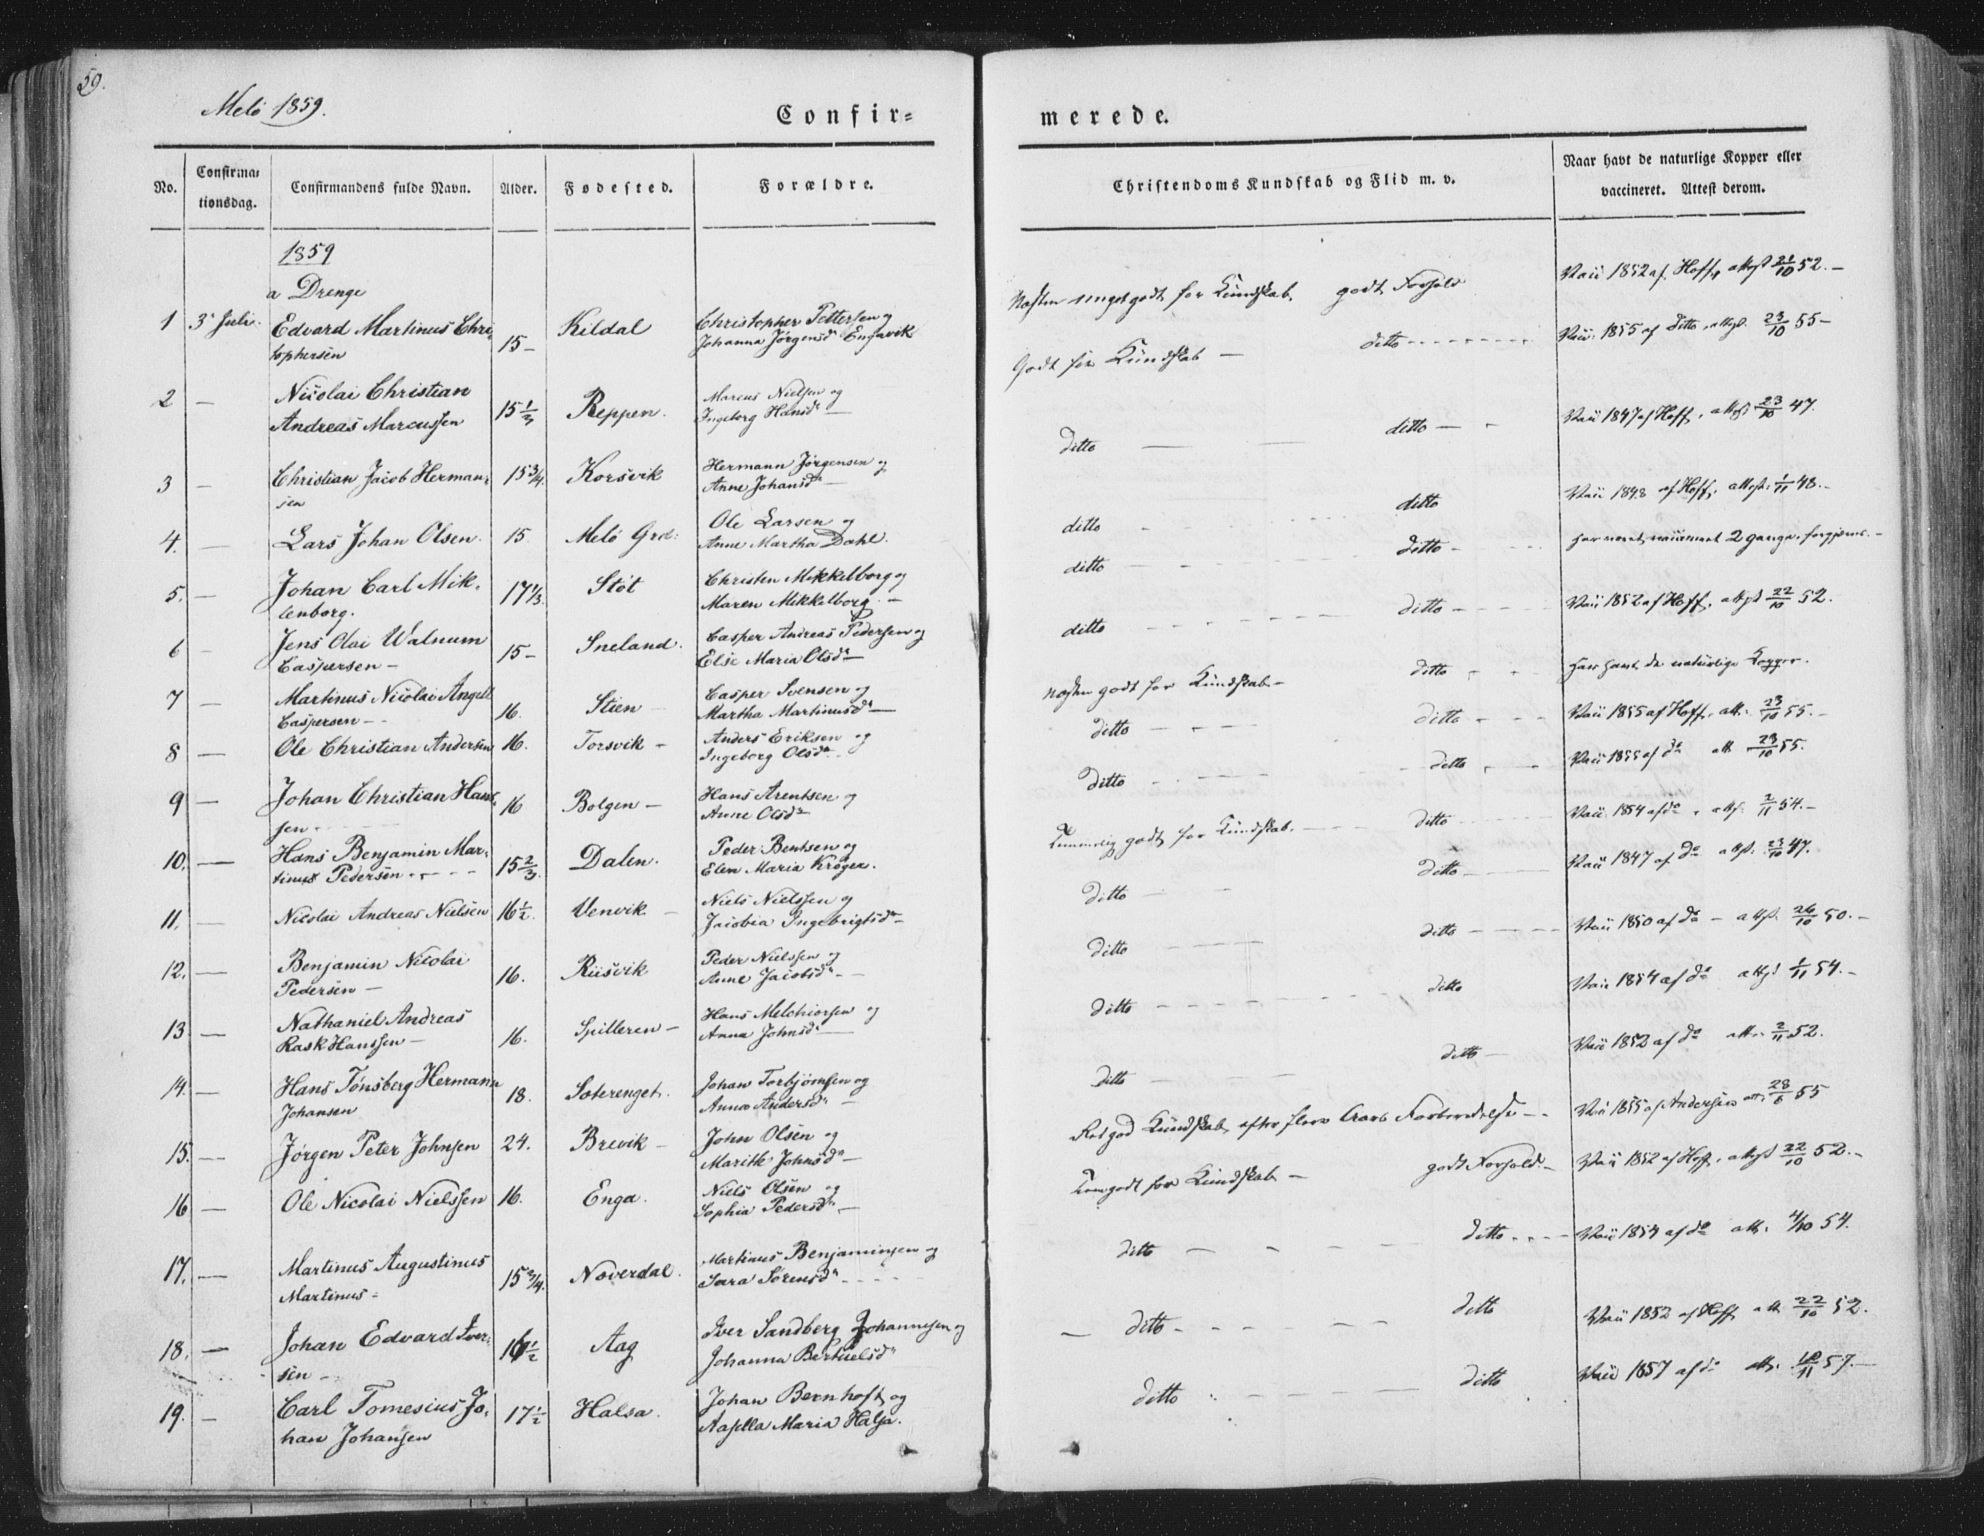 59.
Melö 1859.
Confir=
merede.
No.
Confirma=
tionsdag.
Confirmandens fulde Navn.
Alder.
Fødested.
Forældre.
Christendoms Kundskab og Flid m. v.
Naar havt de naturlige Kopper eller
vaccineret. Attest derom.
1859
a Drenge
1 3' Juli. Edvard Martinus Chri=
tophersen 15 – Kildal Christopher Pettersen og
Johanna Jørgensdr Engavik
Næsten meget godt for Kundskab. godt Forhold Vacc 1852 af Hoff, attest 21/10 52. –
2 – Nicolai Christian
Andreas Marcussen 15 1/3 Reppen. Marcus Nielsen og
Ingeborg Hansdr –
Godt for Kundskab – ditto Vacc. 1855 af ditto, attest. 23/10 55 –
3 – Christian Jacob Herman=
sen 15 3/4. Korsvik Hermann Jørgensen og
Anne Johansdr –
ditto ditto – Vacc 1847 af Hoff, attest 23/10 47.
4. – Lars Johan Olsen. 15. Melö Grd: Ole Larsen og
Anne Martha Dahl.
ditto ditto Vacc 1848 af Hoff, attest. 1/11 48. –
5. – Johan Carl Mik=
lenborg. 17 1/3. Stöt Christen Mikkelborg og
Maren Mikkelborg. –
ditto ditto – har været vaccineret 2 gange, forgjæves. –
6 – Jens Olai Walnum
Caspersen – 15 – Sneland. Casper Andreas Pedersen og
Elise Maria Olsdr –
ditto ditto – Vacc 1852 af Hoff, attest 22/10 52.
7 – Martinus Nicolai Angell
Caspersen – 16. Stien – Casper Svensen og
Martha Martinusdr –
næsten godt for Kundskab – ditto har havt de naturlige Kopper.
8 – Ole Christian Andersen 16. Torsvik – Anders Eriksen og
Ingeborg Olsdr –
ditto ditto – Vacc 1855 af Hoff, att. 23/10 55. –
9 – Johan Christian Han=
sen 16 Bolgen – Hans Arentsen og
Anne Olsdr
ditto ditto Vacc 1855 af do att 23/10 55.
10. – Hans Benjamin Mar=
tinus Pedersen 15 2/3. Dalen. Peder Bentsen og
Elen Maria Krøger.
Temmelig godt for Kundskab. ditto Vacc. 1854 af do, att. 2/11 54. –
11. – Nicolai Andreas Nielsen 16 1/2. Venvik – Niels Nielssen og
Jacobia Ingebrigtsdr –
ditto – ditto Vacc 1847 af do att. 23/10 47.
12. – Benjamin Nicolai
Pedersen – 16. Riisvik Peder Nielssen og
Anne Jacobsdr –
ditto ditto – Vacc 1850 af do – attest. 26/10 50. –
13. – Nathaniel Andreas
Rask Hanssen – 16. Spilderen – Hans Melchiorsen og
Anna Johnsdr –
ditto ditto Vacc 1854 af do attest 1/11 54. –
14. – Hans Tönsberg Hermann
Johansen 18. Soterenget. Johan Torbjörnsen og
Anna Andersdr –
ditto ditto – Vacc 1852 af do att. 2/11 52.
15. – Jørgen Peter Johnsen 24. Brevik – John Olsen og
Marith Johnsdr –
Ret god Kundskab, efter flere Aars Forberedelse – Vacc 1855 af Andersen att. 28/6 55
16 – Ole Nicolai Nielssen 16. Enga. Niels Olsen og
Sophia Pedersdr –
godt for Kundskab – godt Forhold. – Vacc 1852 af Hoff, attest 22/10 52. –
17. – Martinus Augustinus
Martinus= 15 3/4. Noverdal. Martinus Benjaminsen og
Sara Sörensdr
ditto – ditto Vacc 1854 af do att. 4/10 54.
18. – Johan Edvard Iver=
sen – 16 1/2 Aag Iver Sandberg Johannesen og
Johanna Bertuelsdr
– ditto – ditto Vacc 1852 af Hoff att 22/10 52.
19. – Carl Tomesius Jo=
han Johansen 17 1/2 Halsa. Johan Bernhoft og
Aasella Maria Halsa.
ditto ditto Vacc 1857 af do att. 10/11 57. –